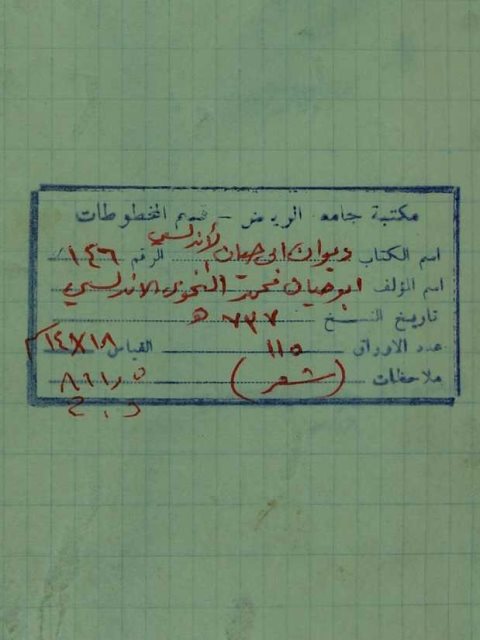 مكتبة جامعة الرياض - قسم المخطوطات
اسم الكتاب ديوان ابى حيان الأندلسي الرقم ١٤٦
اسم المؤلف ابو حيان محمد النحوى الاندلسي
تاريخ النسخ ٧٣٧ هـ
عدد الاوراق ١١٥ القياس ١٨×١٤ م
ملاحظات (شعر) ٨١١٫٥
د.ح